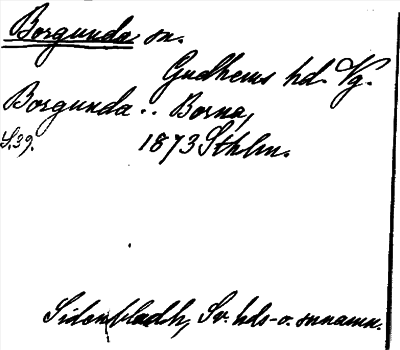 Borgunda sn.
Gudhems hd. Vg.
Borgunda .. Borna,
S.39. 1873 Sthlm.
Sidenbladh, Sv. hds- o. snnamn.